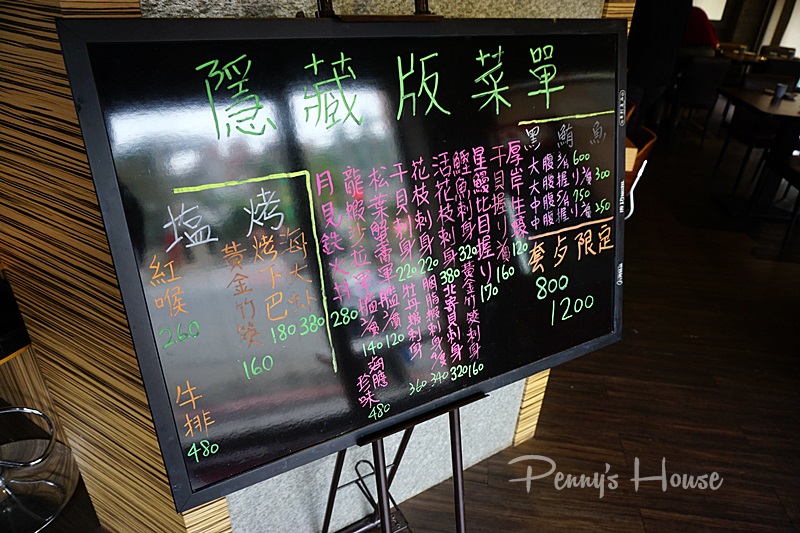 隱藏版菜單
黑鮪魚
大腹 600
大腹握り 300
中腹 750
中腹握り 250
套夕限定
800
1200
厚岸生蠔 120
干貝握り 160
星鰻比目握り 170
鰹魚刺身 320
黃金竹筴刺身 160
活花枝刺身 380
北寄貝刺身 320
花枝刺身 220
胭脂蝦刺身 340
干貝刺身 220
牡丹蝦刺身 360
松葉蟹 軍艦 120
龍蝦沙拉軍艦 140
海膽珍味 480
月見鉄火丼 280
塩烤
海大 380
烤下巴 180
黃金竹筴 160
紅喉 260
牛排 480
Penny's House